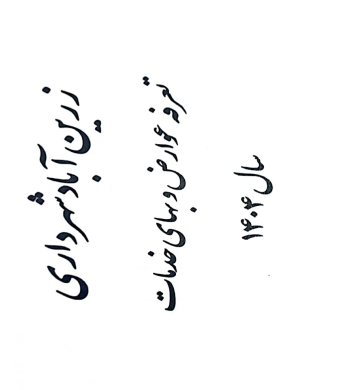 زرین آباد شهرداری
تعرفه عوارض و بهای خدمات
سال ۱۴۰۴